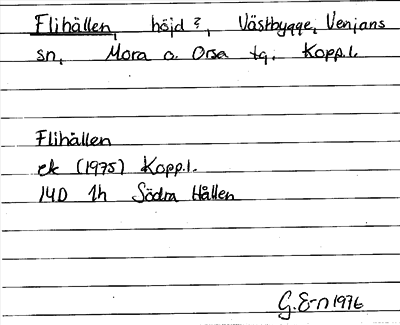 Flihällen, höjd?, Västbygge, Venjans
sn, Mora o. Orsa tg. Kopp.l.
Flihållen
ek (1975) Kopp.l.
14D 1h Södra Hållen
G. E-n 1976